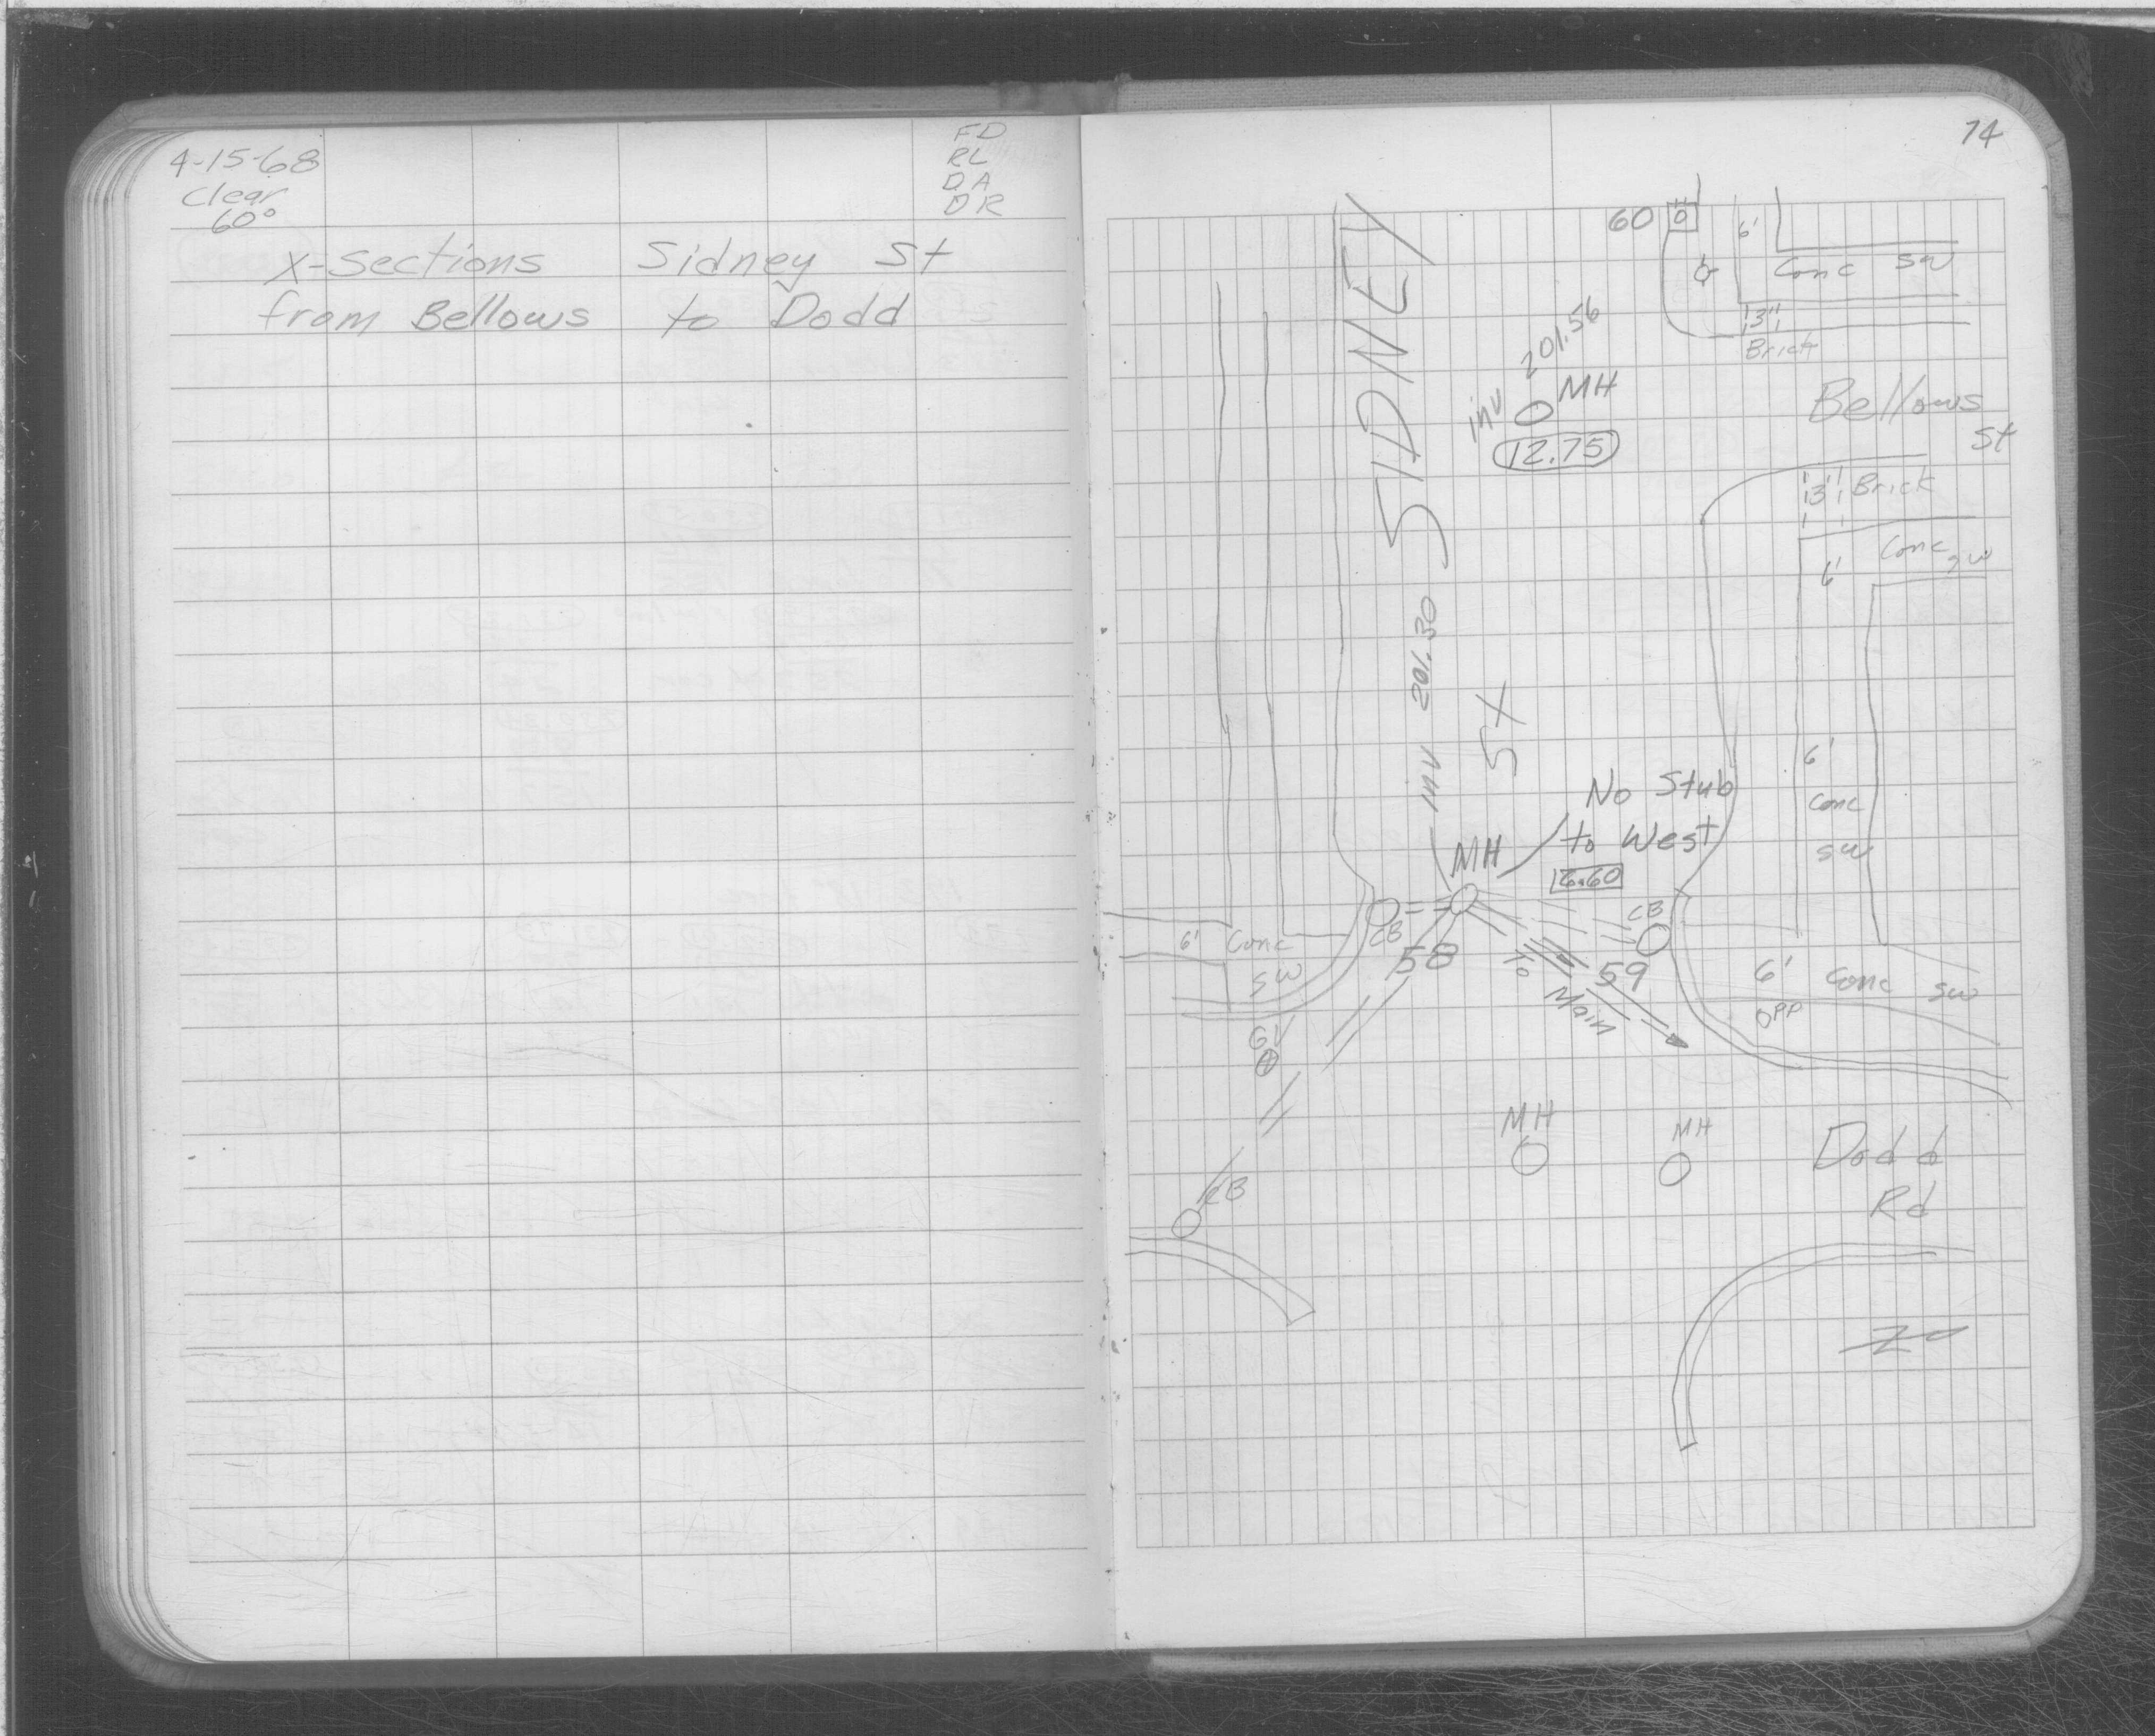 4-15-68
Clear
60°
FD
RL
DA
DR
X-Sections Sidney St
from Bellows to Dodd
74
60
6'
Conc SW
3"
Brick
SIDNEY
inv 201.56
MH
12.75
Bellows
St
3" Brick
Conc SW
6'
inv 201.30
ST
No Stub
to West
MH
6'
Conc
SW
CB
CB
6' Conc
SW
58
To
Main
59
6' Conc SW
PP
GV
MH
MH
Dodd
Rd
CB